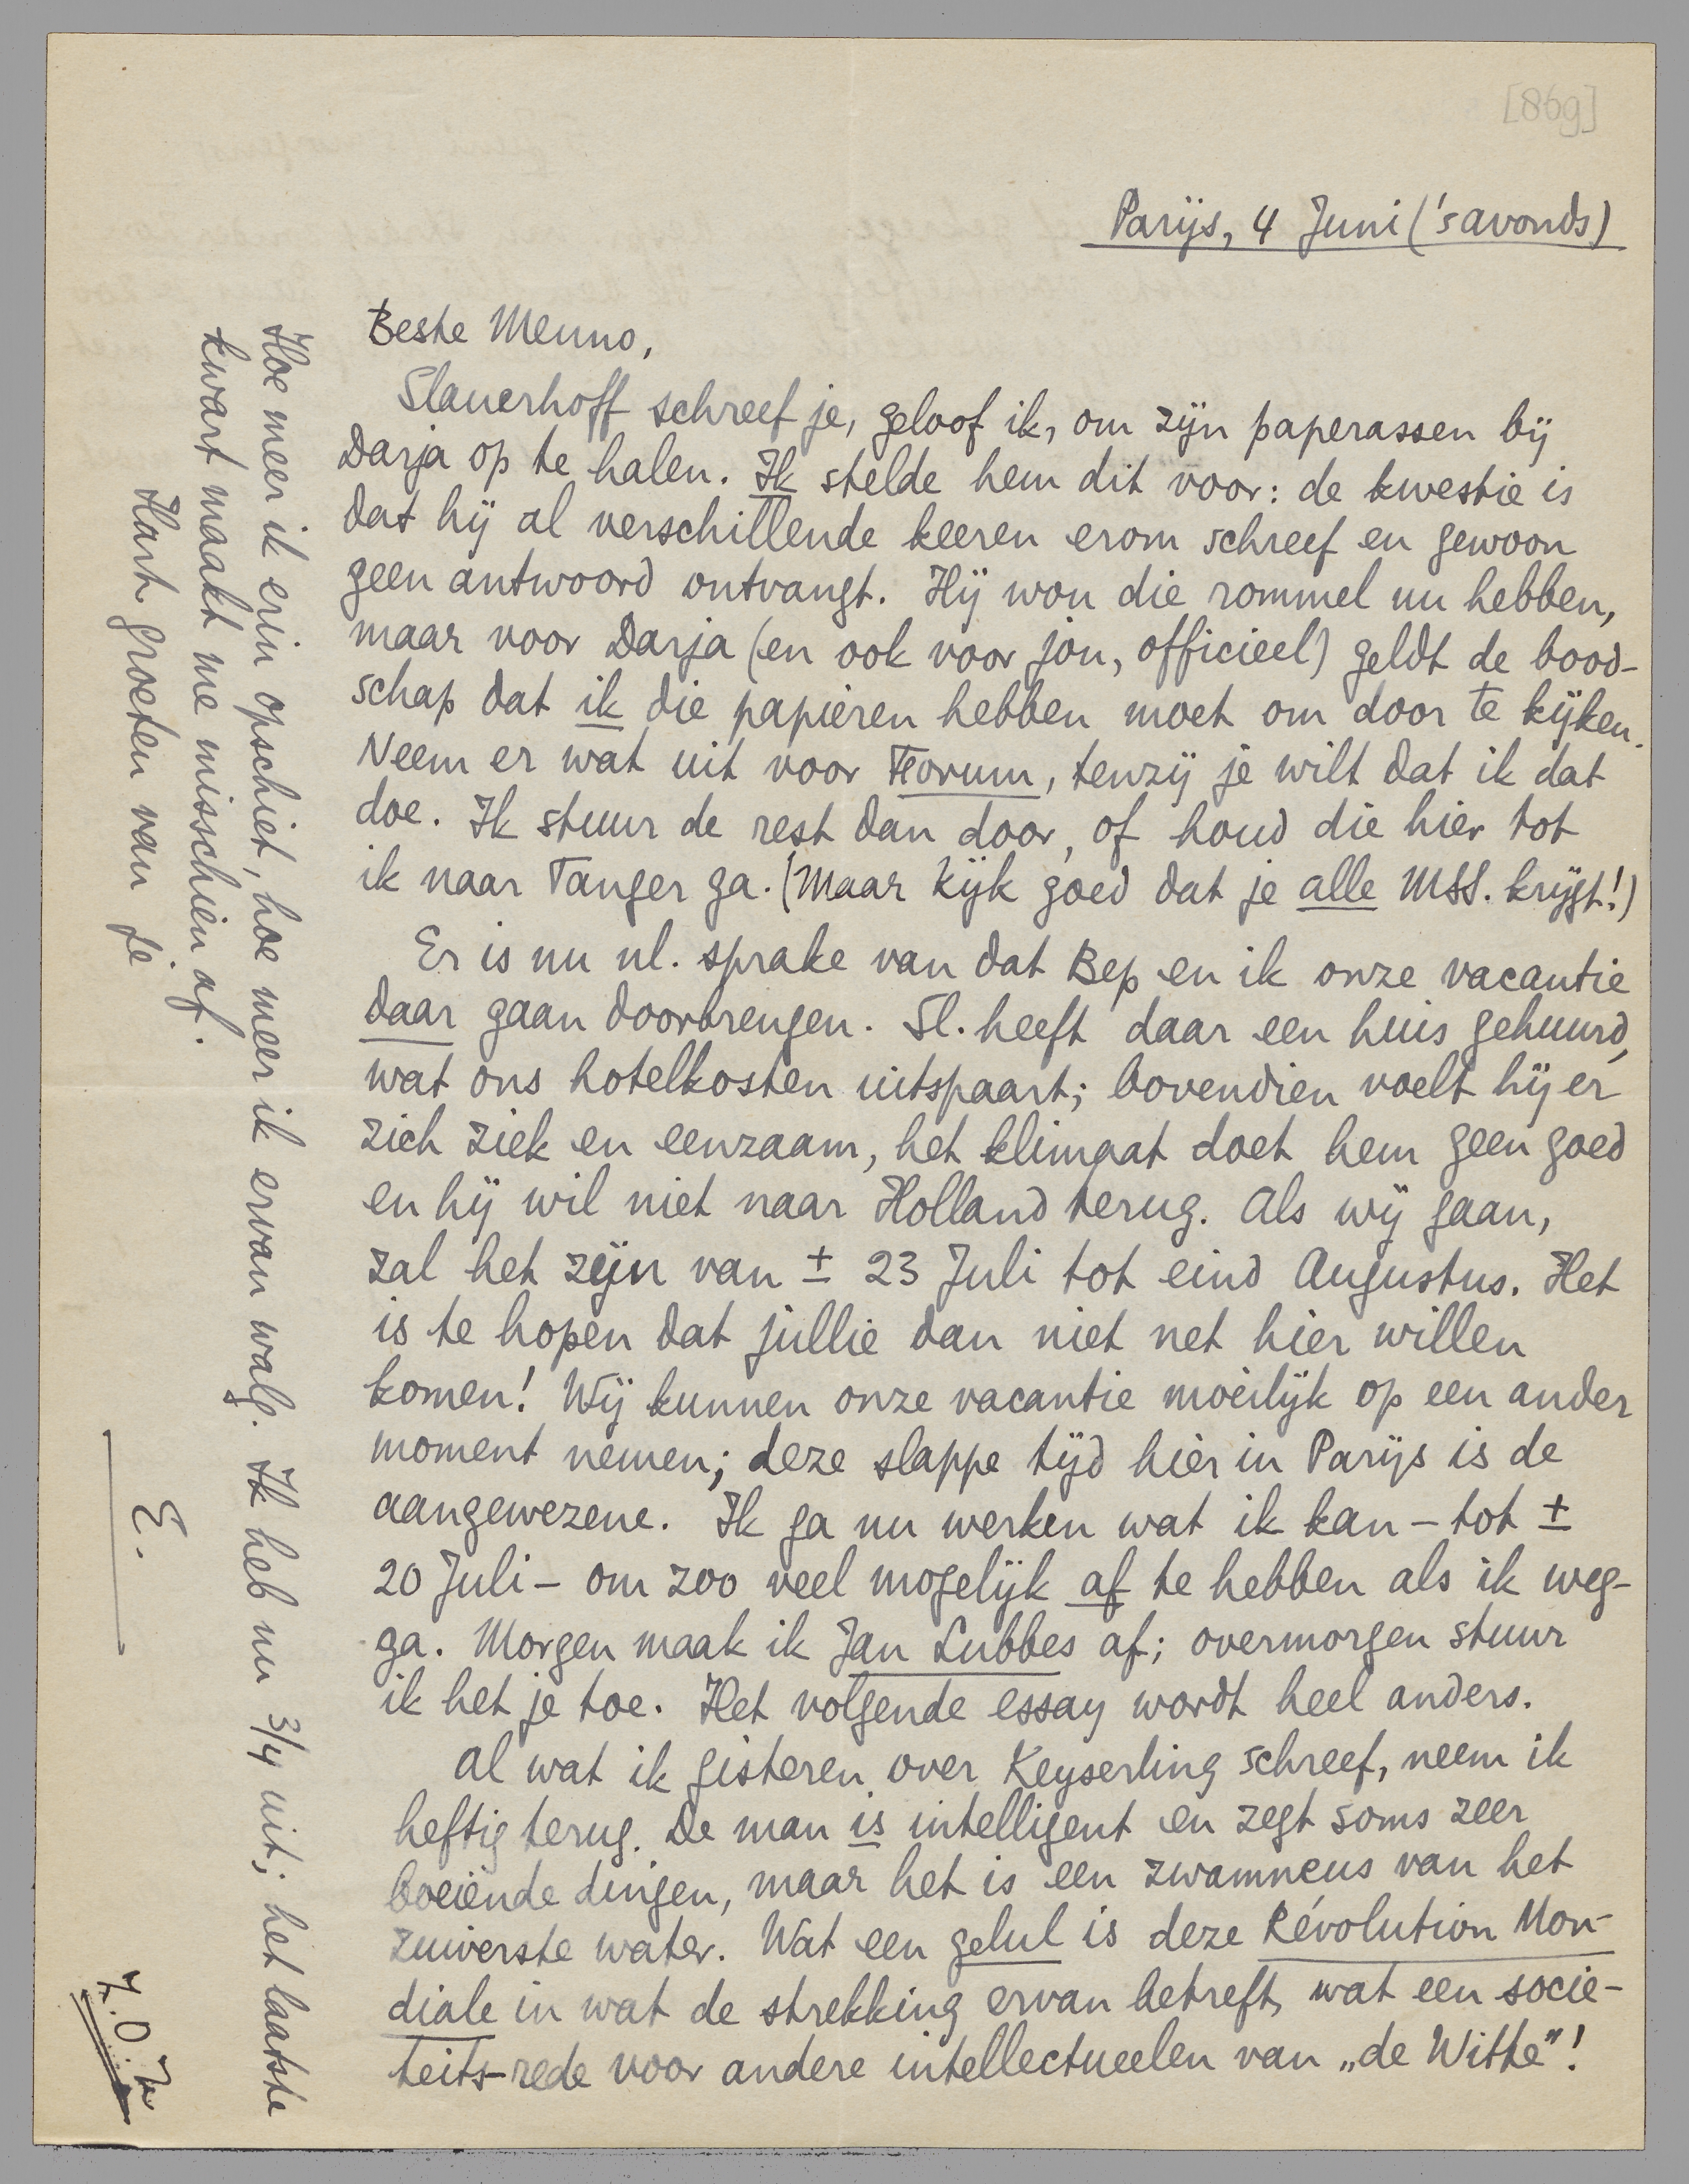 [869]
Parijs, 4 Juni ('s avonds)
Beste Menno,
Slauerhoff schreef je, geloof ik, om zijn paperassen bij
Darja op te halen. Ik stelde hem dit voor: de kwestie is
dat hij al verschillende keeren erom schreef en gewoon
geen antwoord ontvangt. Hij wou die rommel nu hebben,
maar voor Darja (en ook voor jou, officieel) geldt de bood-
schap dat ik die papieren hebben moet om door te kijken.
Neem er wat uit voor Forum, tenzij je wilt dat ik dat
doe. Ik stuur de rest dan door, of houd die hier tot
ik naar Tanger ga. (Maar kijk goed dat je alle MSS. krijgt!)
Er is nu nl. sprake van dat Bep en ik onze vacantie
daar gaan doorbrengen. Sl. heeft daar een huis gehuurd,
wat ons hotelkosten uitspaart; bovendien voelt hij er
zich ziek en eenzaam, het klimaat doet hem geen goed
en hij wil niet naar Holland terug. Als wij gaan,
zal het zijn van ± 23 Juli tot eind Augustus. Het
is te hopen dat jullie dan niet net hier willen
komen! Wij kunnen onze vacantie moeilijk op een ander
moment nemen; deze slappe tijd hier in Parijs is de
aangewezene. Ik ga nu werken wat ik kan – tot ±
20 Juli – om zoo veel mogelijk af te hebben als ik weg-
ga. Morgen maak ik Jan Lubbes af; overmorgen stuur
ik het je toe. Het volgende essay wordt heel anders.
Al wat ik gisteren over Keyserling schreef, neem ik
heftig terug. De man is intelligent en zegt soms zeer
boeiënde dingen, maar het is een zwamneus van het
zuiverste water. Wat een gelul is deze Révolution Mon-
diale in wat de strekking ervan betreft, wat een socie-
teits-rede voor andere intellectueelen van „de Witte"!
Hoe meer ik erin opschiet, hoe meer ik ervan walg. Ik heb nu 3/4 uit; het laatste
kwart maakt me misschien af.
Hart. groeten van je
E.
Z.O.Z.